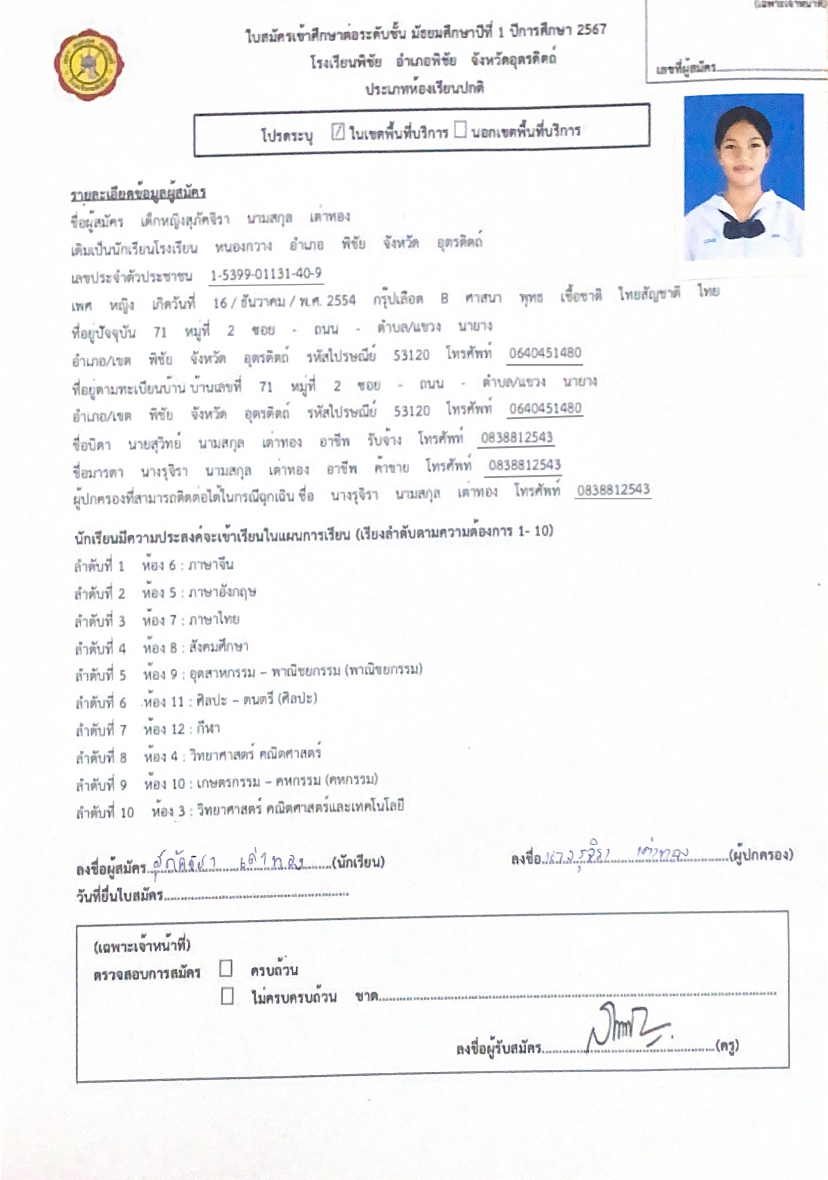 (เฉพาะเจ้าหน้าที่)
ใบสมัครเข้าศึกษาต่อระดับชั้น มัธยมศึกษาปีที่ 1 ปีการศึกษา 2567
โรงเรียนพิชัย อำเภอพิชัย จังหวัดอุตรดิตถ์
เลขที่ผู้สมัคร
ประเภทห้องเรียนปกติ
โปรดระบุ ☑ ในเขตพื้นที่บริการ ☐ นอกเขตพื้นที่บริการ
รายละเอียดข้อมูลผู้สมัคร
ชื่อผู้สมัคร เด็กหญิงสุภัคจิรา นามสกุล เต่าทอง
เดิมเป็นนักเรียนโรงเรียน หนองกวาง อำเภอ พิชัย จังหวัด อุตรดิตถ์
เลขประจำตัวประชาชน 1-5399-01131-40-9
เพศ หญิง เกิดวันที่ 16 / ธันวาคม / พ.ศ. 2554 กรุ๊ปเลือด B ศาสนา พุทธ เชื้อชาติ ไทยสัญชาติ ไทย
ที่อยู่ปัจจุบัน 71 หมู่ที่ 2 ซอย - ถนน - ตำบล/แขวง นายาง
อำเภอ/เขต พิชัย จังหวัด อุตรดิตถ์ รหัสไปรษณีย์ 53120 โทรศัพท์ 0640451480
ที่อยู่ตามทะเบียนบ้าน บ้านเลขที่ 71 หมู่ที่ 2 ซอย - ถนน - ตำบล/แขวง นายาง
อำเภอ/เขต พิชัย จังหวัด อุตรดิตถ์ รหัสไปรษณีย์ 53120 โทรศัพท์ 0640451480
ชื่อบิดา นายสุวิทย์ นามสกุล เต่าทอง อาชีพ รับจ้าง โทรศัพท์ 0838812543
ชื่อมารดา นางรุจิรา นามสกุล เต่าทอง อาชีพ ค้าขาย โทรศัพท์ 0838812543
ผู้ปกครองที่สามารถติดต่อได้ในกรณีฉุกเฉิน ชื่อ นางรุจิรา นามสกุล เต่าทอง โทรศัพท์ 0838812543
นักเรียนมีความประสงค์จะเข้าเรียนในแผนการเรียน (เรียงลำดับตามความต้องการ 1- 10)
ลำดับที่ 1 ห้อง 6 : ภาษาจีน
ลำดับที่ 2 ห้อง 5 : ภาษาอังกฤษ
ลำดับที่ 3 ห้อง 7 : ภาษาไทย
ลำดับที่ 4 ห้อง 8 : สังคมศึกษา
ลำดับที่ 5 ห้อง 9 : อุตสาหกรรม – พาณิชยกรรม (พาณิชยกรรม)
ลำดับที่ 6 ห้อง 11 : ศิลปะ – ดนตรี (ศิลปะ)
ลำดับที่ 7 ห้อง 12 : กีฬา
ลำดับที่ 8 ห้อง 4 : วิทยาศาสตร์ คณิตศาสตร์
ลำดับที่ 9 ห้อง 10 : เกษตรกรรม – คหกรรม (คหกรรม)
ลำดับที่ 10 ห้อง 3 : วิทยาศาสตร์ คณิตศาสตร์และเทคโนโลยี
ลงชื่อผู้สมัคร สุภัคจิรา เต่าทอง (นักเรียน) ลงชื่อ นางรุจิรา เต่าทอง (ผู้ปกครอง)
วันที่ยื่นใบสมัคร
(เฉพาะเจ้าหน้าที่)
ตรวจสอบการสมัคร ☐ ครบถ้วน
☐ ไม่ครบครบถ้วน ขาด
ลงชื่อผู้รับสมัคร (ครู)